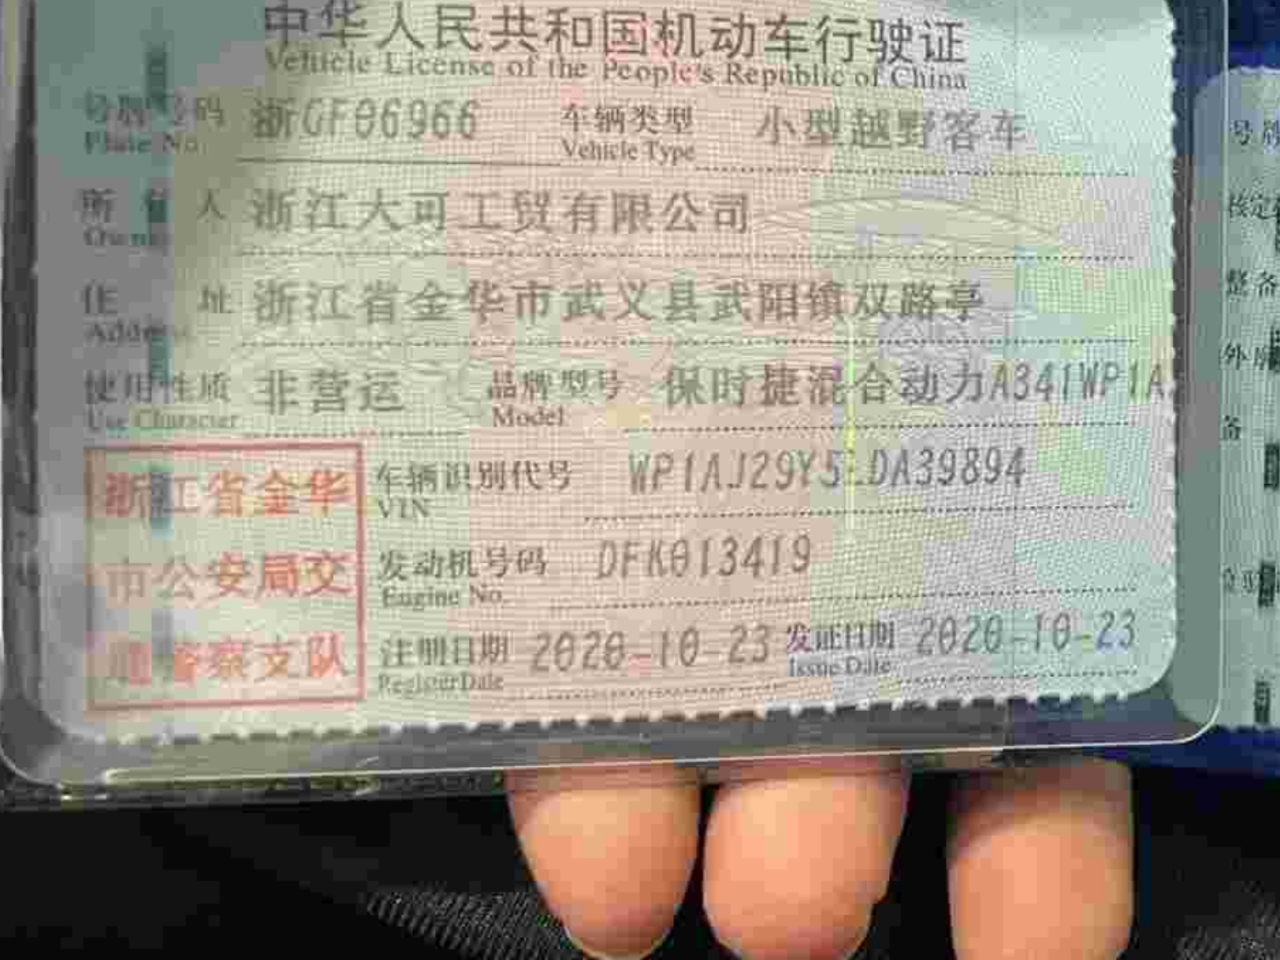 中华人民共和国机动车行驶证
Vehicle License of the People's Republic of China
号牌号码 浙GF06966 车辆类型 小型越野客车
Plate No. Vehicle Type
所 有 人 浙江大可工贸有限公司
Owner
住 址 浙江省金华市武义县武阳镇双路亭
Address
使用性质 非营运 品牌型号 保时捷混合动力A341WP1A
Use Character Model
浙江省金华 车辆识别代号 WP1AJ29Y5LDA39894
VIN
市公安局交 发动机号码 DFK013419
Engine No.
通警察支队 注册日期 2020-10-23 发证日期 2020-10-23
Register Date Issue Date
号牌
核定
整备
外廓
备